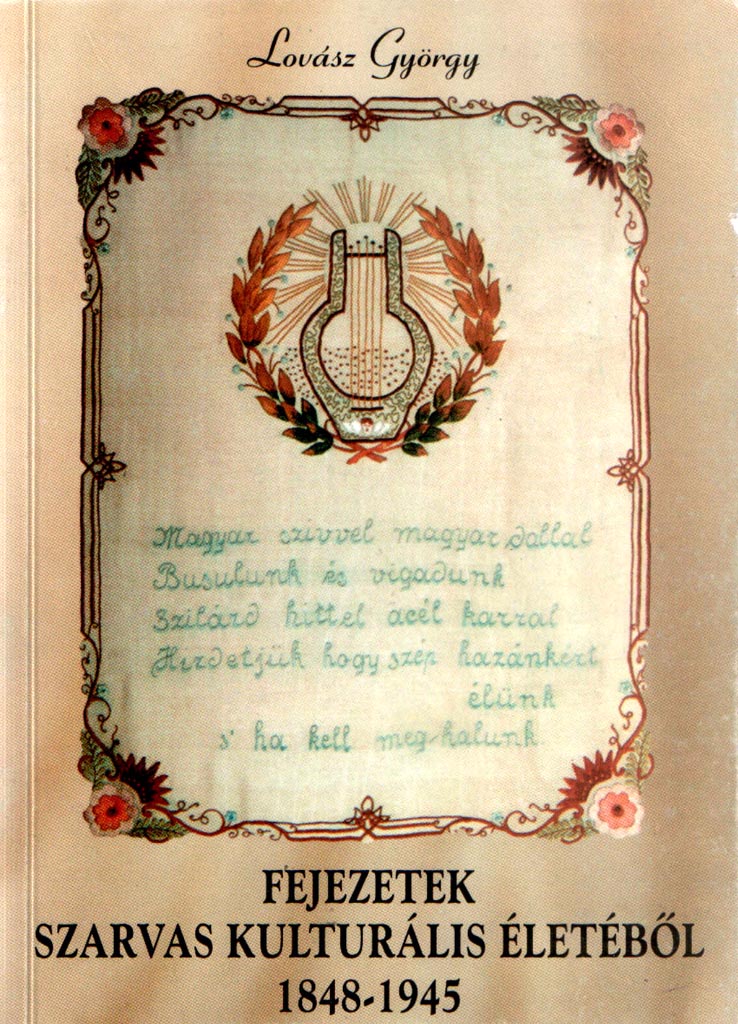 Lovász György
Magyar szivvel magyar dallal
Busulunk és vigadunk
Szilárd hittel acél karral
Hirdetjük hogy szép hazánkért
élünk
s' ha kell meg halunk
FEJEZETEK
SZARVAS KULTURÁLIS ÉLETÉBŐL
1848-1945